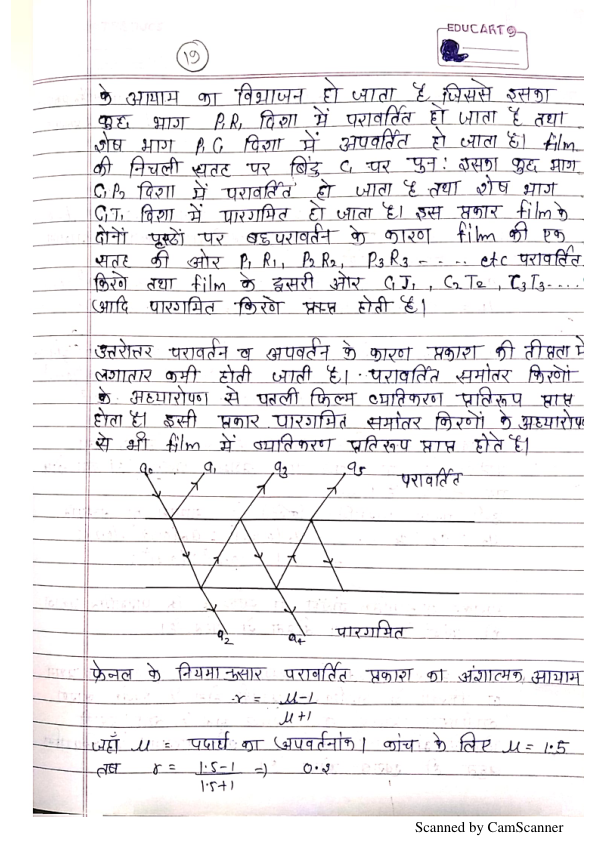 EDUCART
19
के आयाम का विभाजन हो जाता है जिससे इसका
कुछ भाग P₁R₁ दिशा में परावर्तित हो जाता है तथा
शेष भाग P₁C₁ दिशा में अपवर्तित हो जाता है। film
की निचली सतह पर बिंदु C₁ पर पुनः इसका कुछ भाग
C₁P₂ दिशा में परावर्तित हो जाता है तथा शेष भाग
C₁T₁ दिशा में पारगमित हो जाता है। इस प्रकार film के
दोनों पृष्ठों पर बहुपरावर्तन के कारण film की एक
सतह की ओर P₁R₁, P₂R₂, P₃R₃ ----- etc परावर्तित
किरणे तथा film के दूसरी ओर C₁T₁, C₂T₂, C₃T₃.....
आदि पारगमित किरणे प्राप्त होती है।
उत्तरोत्तर परावर्तन व अपवर्तन के कारण प्रकाश की तीव्रता में
लगातार कमी होती जाती है। परावर्तित समांतर किरणों
के अध्यारोपण से पतली फिल्म व्यतिकरण प्रतिरूप प्राप्त
होता है। इसी प्रकार पारगमित समांतर किरणों के अध्यारोपण
से भी film में व्यतिकरण प्रतिरूप प्राप्त होते है।
a₀ a₁ a₃ a₅ परावर्तित
a₂ a₄ पारगमित
फ्रेनल के नियमानुसार परावर्तित प्रकाश का अंशात्मक आयाम
r = μ-1
μ+1
जहाँ μ = पदार्थ का अपवर्तनांक। कांच के लिए μ = 1.5
तब r = 1.5-1 => 0.2
1.5+1
Scanned by CamScanner